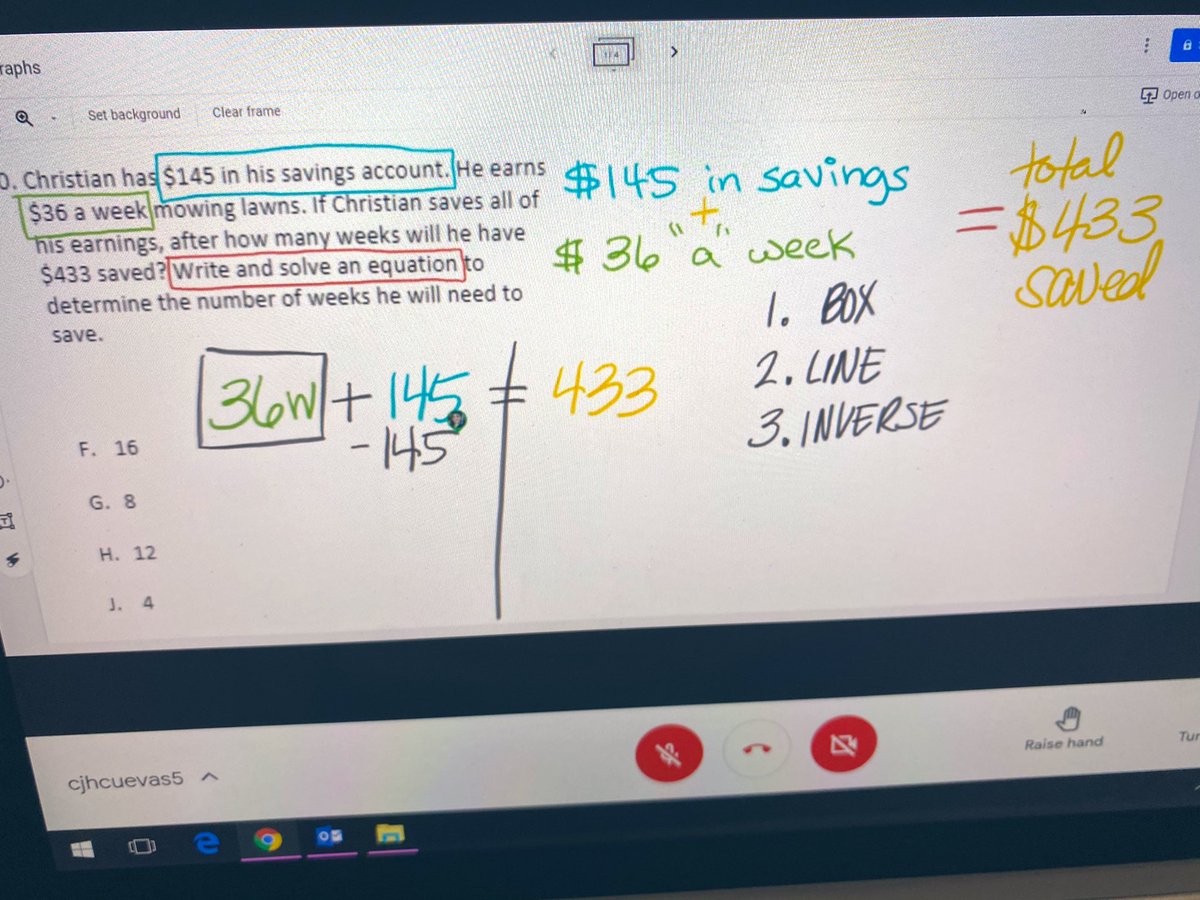 raphs
1/4
Set background
Clear frame
Open o
0. Christian has $145 in his savings account. He earns
$36 a week mowing lawns. If Christian saves all of
his earnings, after how many weeks will he have
$433 saved? Write and solve an equation to
determine the number of weeks he will need to
save.
$145 in savings
+
$36 "a" week
= total
$433
saved
1. BOX
2. LINE
3. INVERSE
36w + 145 = 433
- 145
F. 16
G. 8
H. 12
J. 4
cjhcuevas5
Raise hand
Tur